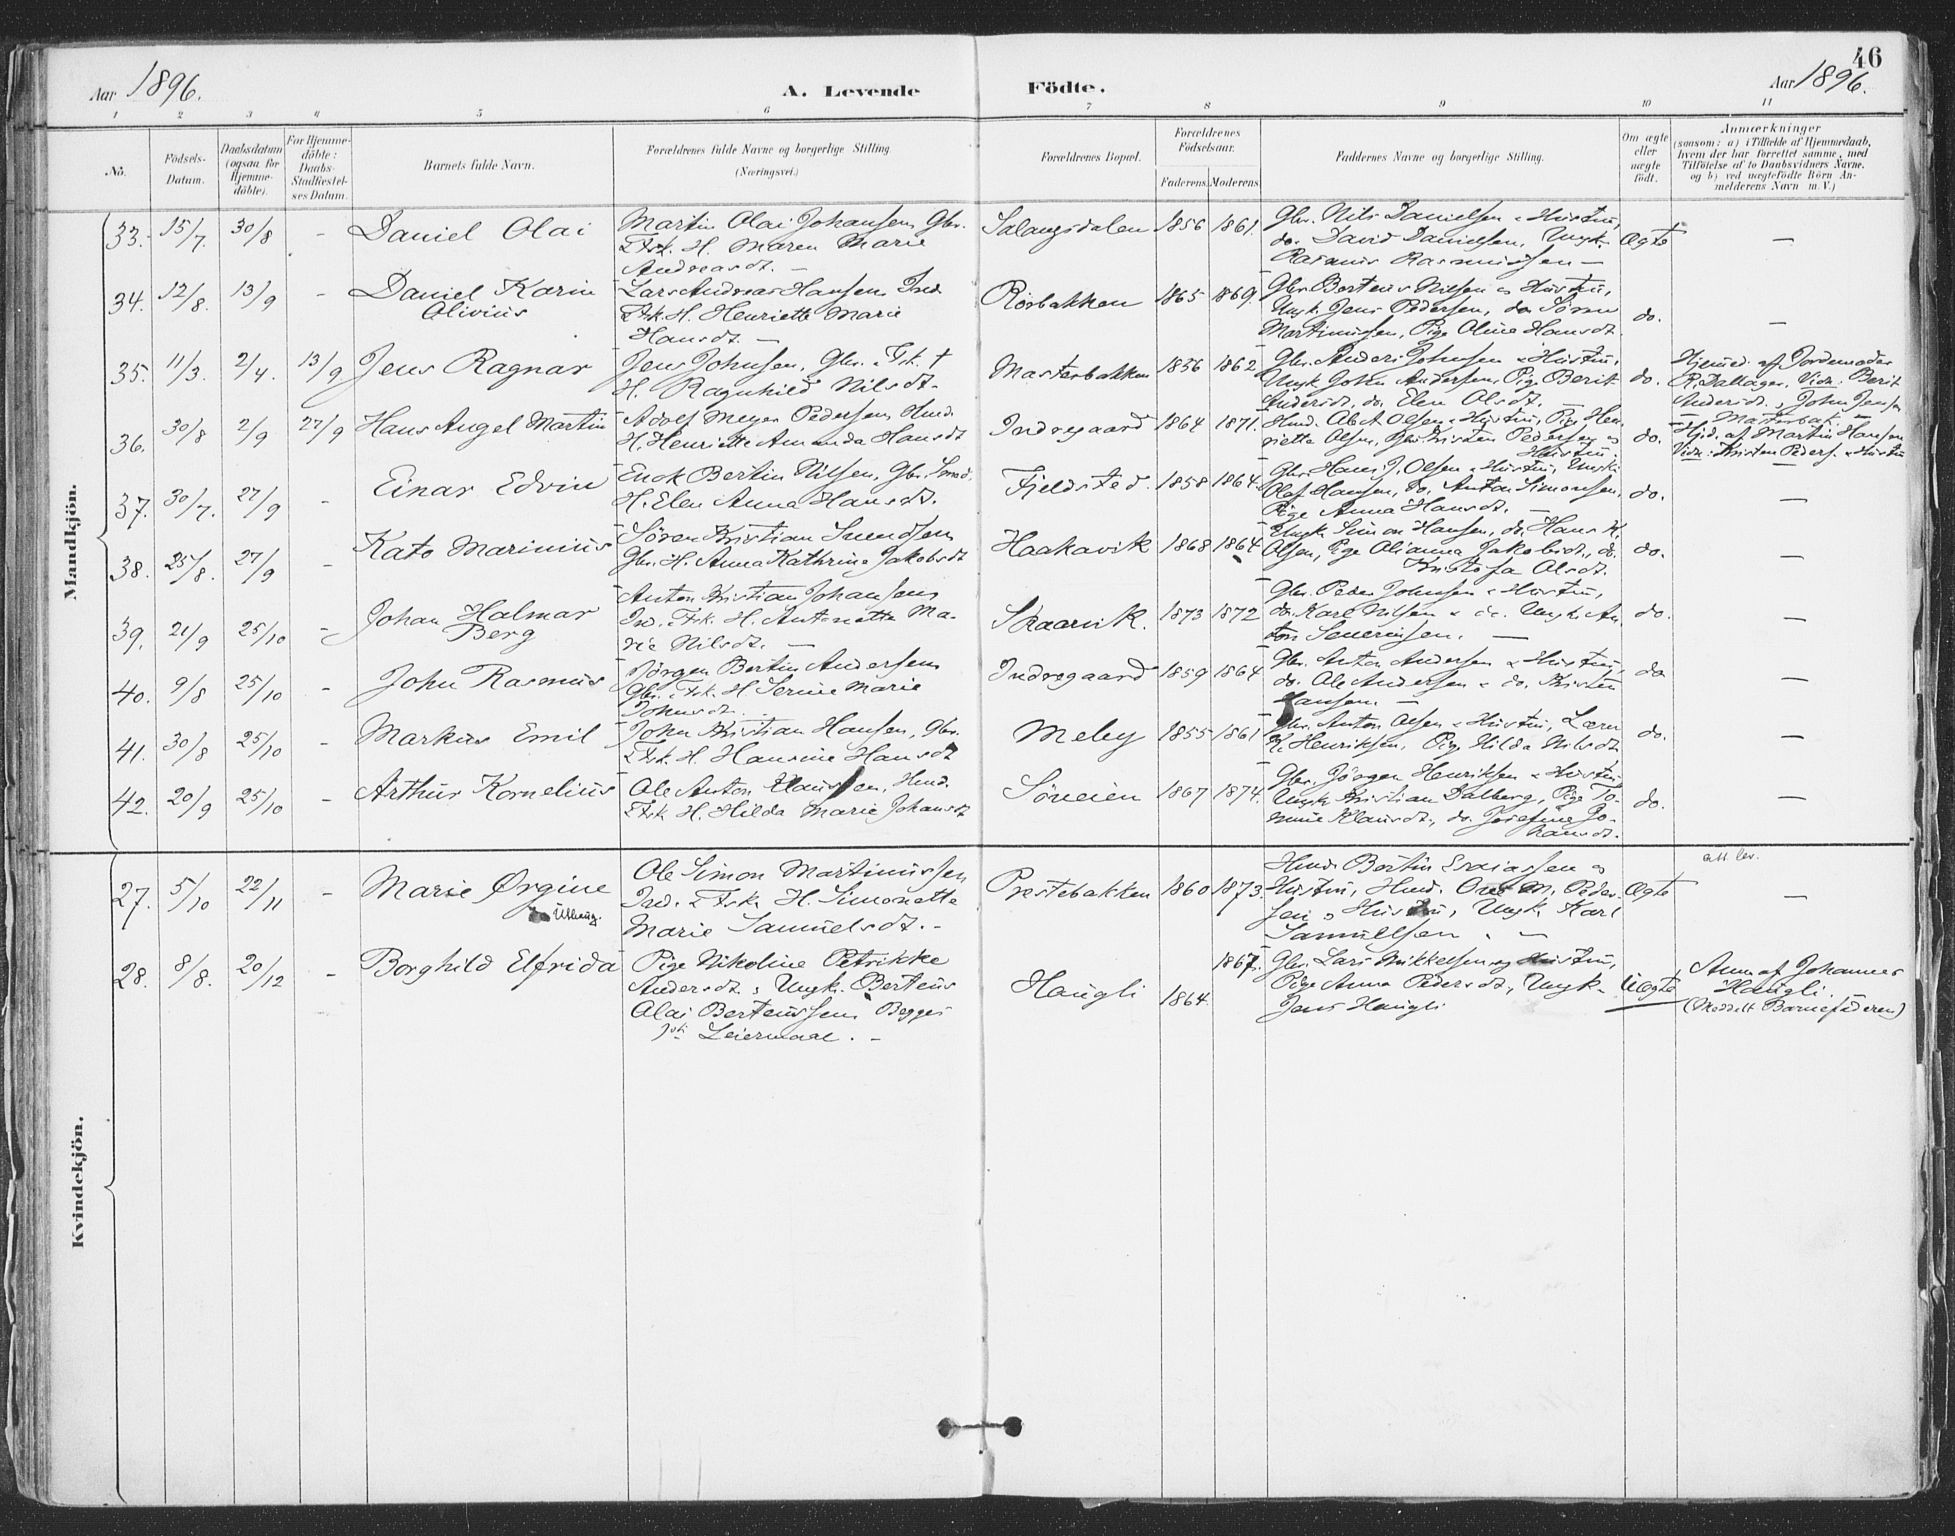 46
Aar 1896.
A. Levende
Födte.
Aar 1896.
1 2 3 4 5 6 7 8 9 10 11
No.
Födsels-
Datum.
Daabsdatum
(ogsaa for
Hjemme-
döbte).
For Hjemme-
döbte:
Daabs-
Stadfæstel-
ses Datum.
Barnets fulde Navn.
Forældrenes fulde Navne og borgerlige Stilling.
(Næringsvei.)
Forældrenes Bopæl.
Forældrenes
Födselsaar.
Faderens. Moderens.
Faddernes Navne og borgerlige Stilling.
Om ægte
eller
uægte
födt.
Anmærkninger
(saasom: a) i Tilfælde af Hjemmedaab,
hvem der har forrettet samme, med
Tilföielse af to Daabsvidners Navne,
og b) ved uægtefödte Börn An-
melderens Navn m. V.)
Mandkjön.
33. 15/7. 30/8 - Daniel Olai
Martin Olai Johansen, Gbr.
Fsk. H. Maren Marie
Andreasdt. -
Salangsdalen 1856 1861.
Gbr. Nils Danielsen & Hustru,
do. David Danielsen, Ungk.
Rasmus Rasmussen -
Ægte -
34. 12/8. 13/9 - Daniel Karin
Olivius
Lars Andreas Hansen Ind.
Fsk. H. Henriette Marie
Hansdt. -
Rörbakken 1865 1869.
Gbr. Berteus Nilsen & Hustru,
Ungk. Jens Pedersen, do. Sören
Martinussen, Pige Oline Hansdt.
do. -
35. 11/3. 2/4. 13/9 Jens Ragnar
Jens Johnsen, Gbr. & Fsk. †
H. Ragnhild Nilsdt.
Masterbakken 1856 1862
Gbr. Anders Johnsen & Hustru,
Ungk. John Andersen, Pige Berit
Andersdt., do. Elen Olsdt. -
do.
Hjemmed. af Jordemoder
R. Dallager, Vidn: Berit
Andersdt., John Jensen
Masterbak. -
36. 30/8 2/9 27/9 Hans Angel Martin
Adolf Meyer Pedersen Hmd.
H. Henriette Amanda Hansdt
Indregaard 1864 1871.
Hmd. Ole A. Olsen & Hustru, Pige Hen-
riette Olsen, Gbr. Kristen Pedersen &
Hustru.
do.
Hjd. af Martin Hansen
Vidn: Kristen Peders. & Hustru
37. 30/7. 27/9 - Einar Edvin
Enok Bertin Nilsen, Gbr. Smed.
H. Elen Anna Hansdt.
Fjeldsted. 1858 1864.
Gbr. Hans J. Olsen & Hustru, Ungk.
Olaf Hansen, do. Anton Simonsen,
Pige Anna Hansdt. -
do. -
38. 25/8. 27/9 - Kato Marinius
Sören Kristian Svendsen
Gbr. H. Anna Kathrine Jakobsdt
Haakavik 1868 1864
Ungk. Simon Hansen, do. Hans K.
Olsen, Pige Olianna Jakobsdt., do.
Kristofa Olsdt.
do. -
39. 21/9 25/10 - Johan Halmar
Berg
Anton Kristian Johansen
Ind. Fsk. H. Antonette Ma-
rie Nilsdt. -
Skaarvik. 1873 1872
Gbr. Peder Johnsen & Hustru,
do. Karl Nilsen & do. Ungk. An-
ton Severinsen. -
do. -
40. 9/8 25/10 - John Rasmus
Jörgen Bertin Andersen
Gbr. & Fsk. H. Serine Marie
Johnsdt.
Indregaard 1859 1864
Gbr. Anton Andersen & Hustru,
do. Ole Andersen & do. Kristen
Hansen. -
do -
41. 30/8 25/10 - Markus Emil
John Kristian Hansen, Gbr.
Fsk. H. Hansine Hansdt
Meby 1855 1861
Gbr. Anton Olsen & Hustru, Lærer
K. Henriksen, Pige Hilda Nilsdt.
do. -
42. 20/9 25/10 - Arthur Kornelius
Ole Anton Klaussen, Hmd.
Fsk. H. Hilda Marie Johansdt
Söveien 1867 1874.
Gbr. Jörgen Henriksen & Hustru,
Ungk. Kristian Dalberg, Pige To-
mine Klausdt., do. Josefine Jo-
hansdt.
do. -
Kvindekjön.
27. 5/10 22/11 - Marie Ørgine
Ullaug.
Ole Simon Martinussen
Ind. & Fsk. H. Simonette
Marie Samuelsdt. -
Prestebakken 1860 1873.
Hmd. Bertin Esaiassen &
Hustru, Hmd. Ole M. Peder-
sen & Hustru, Ungk. Karl
Samuelsen. -
Ægte
att. lev.
-
28. 8/8. 20/12 - Borghild Elfrida
Pige Nikoline Petrikke
Andersdt. & Ungk. Berteus
Olai Berteussen Begges
Leiermaal. -
Haugli 1864 1867.
Gbr. Lars Mikkelsen og Hustru,
Pige Anna Pedersdt., Ungk.
Jens Haugli
Uægte
Anm. af Johannes
Haugli.
(Meddelt Barnefaderen)